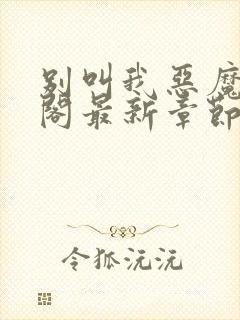 别叫我恶魔
阁最新章节
令狐沅沅